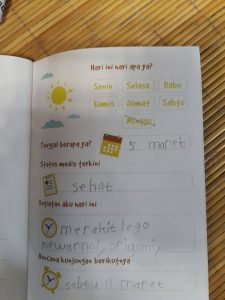 Hari ini hari apa ya?
Senin Selasa Rabu
Kamis Jumat Sabtu
Minggu
Tanggal berapa ya? 5 maret
Status medis terkini
sehat
Kegiatan aku hari ini
merakit lego
mewarnai, origami,
Rencana kunjungan berikutnya
sabtu 11 maret